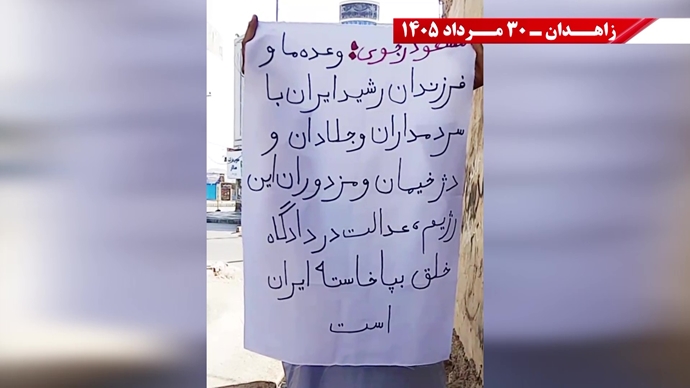 زاهـدان ــ ۳۰ مــرداد ۱۴۰۵
مسعود رجوی: وعده ما و
فرزندان رشید ایران با
سردمداران و جلادان و
دژخیمان و مزدوران این
رژیم، عدالت در دادگاه
خلق بپاخاستهٔ ایران
است